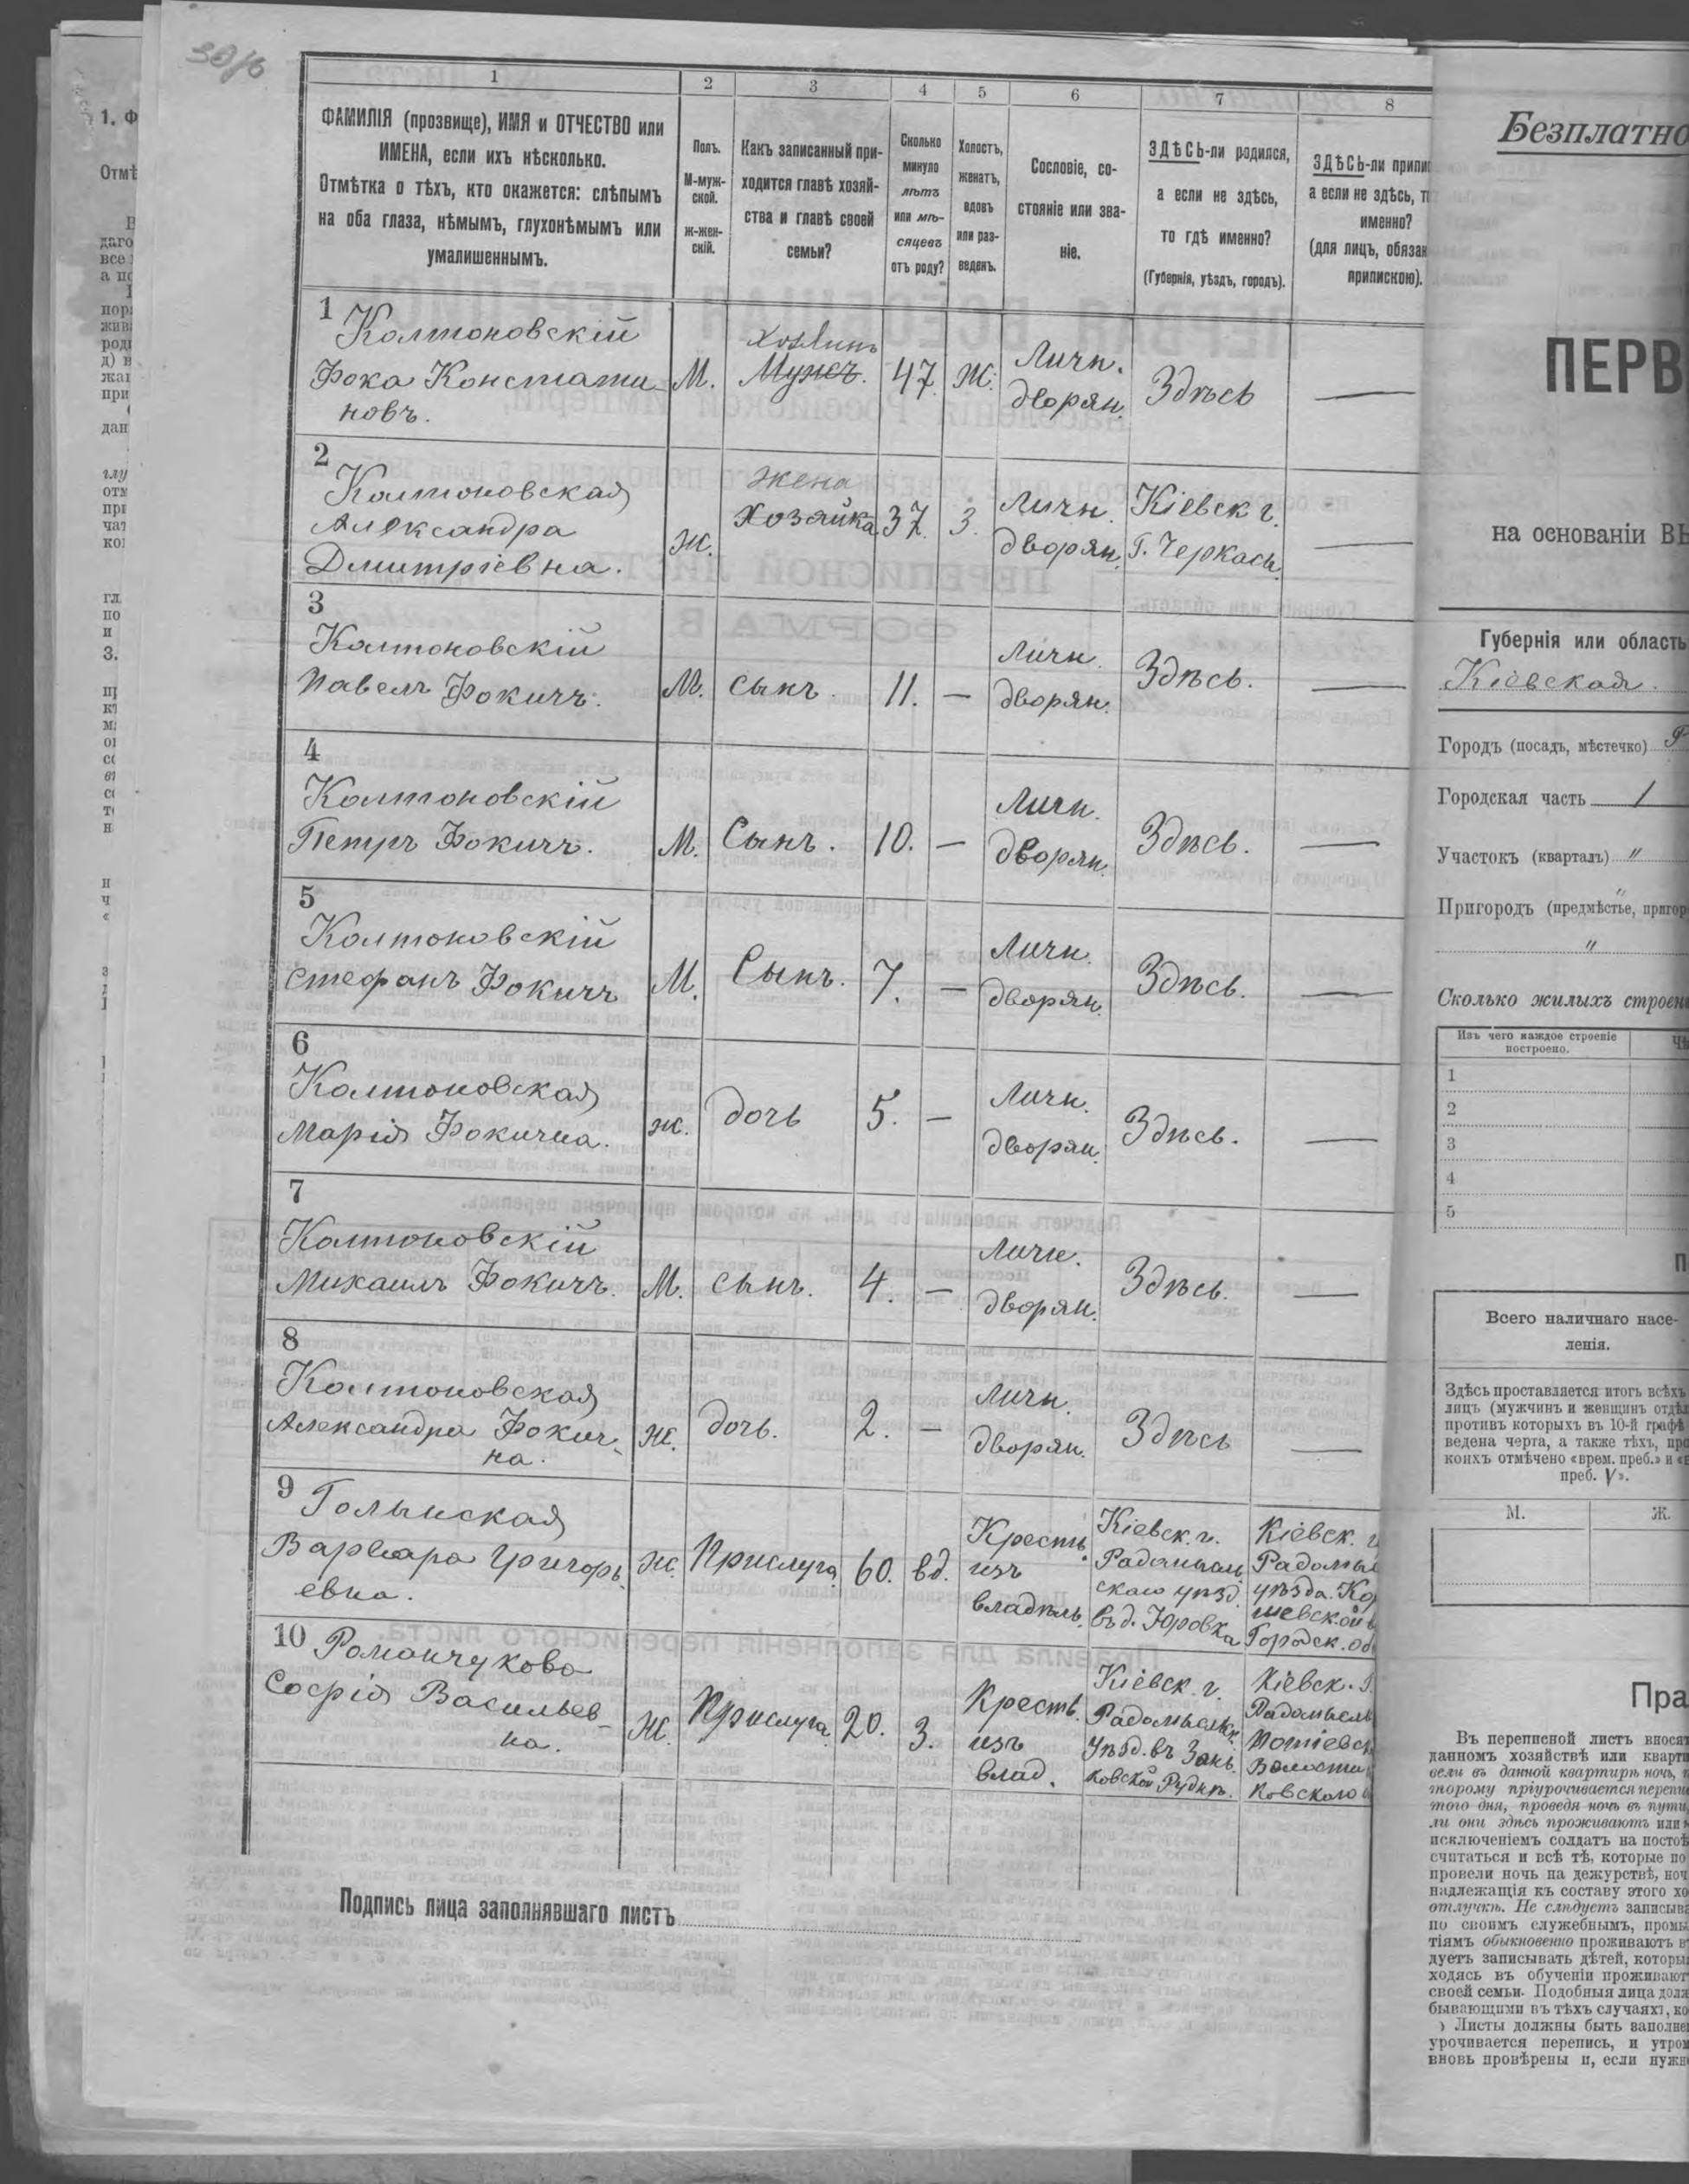 30/б
1 2 3 4 5 6 7 8
ФАМИЛІЯ (прозвище), ИМЯ и ОТЧЕСТВО или
ИМЕНА, если ихъ нѣсколько.
Отмѣтка о тѣхъ, кто окажется: слѣпымъ
на оба глаза, нѣмымъ, глухонѣмымъ или
умалишеннымъ.
Полъ.
М-муж-
ской.
ж-жен-
скій.
Какъ записанный при-
ходится главѣ хозяй-
ства и главѣ своей
семьи?
Сколько
минуло
лѣтъ
или мѣ-
сяцевъ
отъ роду?
Холостъ,
женатъ,
вдовъ
или раз-
веденъ.
Сословіе, со-
стояніе или зва-
ніе.
ЗДѢСЬ-ли родился,
а если не здѣсь,
то гдѣ именно?
(Губернія, уѣздъ, городъ).
ЗДѢСЬ-ли припи
а если не здѣсь, т
именно?
(для лицъ, обязан
припискою).
1
Колтоновскій
Фока Констати
новъ.
М.
Хозяинъ
Мужъ.
47.
Ж.
Личн.
дворян.
Здѣсь
—
2
Колтоновская
Александра
Дмитріевна.
Ж.
Жена
Хозяйка
37.
З.
Личн.
дворян.
Кіевск г.
Г. Черкасы.
—
3
Колтоновскій
Павелъ Фокичъ.
М.
сынъ.
11.
—
Личн.
дворян.
Здѣсь.
—
4
Колтоновскій
Петръ Фокичъ.
М.
Сынъ.
10.
—
Личн.
дворян.
Здѣсь.
—
5
Колтоновскій
Стефанъ Фокичъ
М.
Сынъ.
7.
—
Личн.
дворян.
Здѣсь.
—
6
Колтоновская
Марія Фокична.
ж.
дочь
5.
—
Личн.
дворян.
Здѣсь.
—
7
Колтоновскій
Михаилъ Фокичъ.
М.
сынъ.
4.
—
Личн.
дворян.
Здѣсь.
—
8
Колтоновская
Александра Фокич-
на.
ж.
дочь.
2.
—
Личн.
дворян.
Здѣсь
—
9
Голынская
Варвара Григорь
евна.
ж.
Прислуга
60.
вд.
Крестъ.
изъ
владѣль.
Кіевск. г.
Радомысль
скаго уѣзд.
въ д. Юровка
Кіевск. г
Радомыс
уѣзда. Ко
шевской в
Городск. об
10
Романчукова
Софія Васильев-
на.
Ж.
Прислуга
20.
З.
Крестъ.
изъ
влад.
Кіевск. г.
Радомысльск.
Уѣзд. въ Зань
ковской Рудкѣ.
Кіевск. г.
Радомысль
Потіевск
Волости
ковского
Подпись лица заполнявшаго листъ
Безплатно
ПЕРВ
на основаніи ВЫ
Губернія или область
Кіевская.
Городъ (посадъ, мѣстечко) Р
Городская часть 1
Участокъ (кварталъ) "
Пригородъ (предмѣстье, пригор
"
Сколько жилыхъ строен
Изъ чего каждое строеніе
построено.
1
2
3
4
5
П
Всего наличнаго насе-
ленія.
Здѣсь проставляется итогъ всѣхъ
лицъ (мужчинъ и женщинъ отдѣл
противъ которыхъ въ 10-й графѣ
ведена черта, а также тѣхъ, про
коихъ отмѣчено «врем. преб.» и «в
преб. V».
М. Ж.
Пра
Въ переписной листъ вносят
данномъ хозяйствѣ или кварти
вели въ данной квартирѣ ночь, п
торому пріурочивается перепи
того дня, проведя ночь въ пути,
ли они здѣсь проживаютъ или
исключеніемъ солдатъ на постоѣ
считаться и всѣ тѣ, которые по
провели ночь на дежурствѣ, ноч
надлежащія къ составу этого хо
отлучкѣ. Не слѣдуетъ записыва
по своимъ служебнымъ, промы
тіямъ обыкновенно проживаютъ в
дуетъ записывать дѣтей, которы
ходясь въ обученіи проживают
своей семьи. Подобныя лица долж
бывающими въ тѣхъ случаяхъ, ко
) Листы должны быть заполне
урочивается перепись, и утром
вновь провѣрены и, если нужн